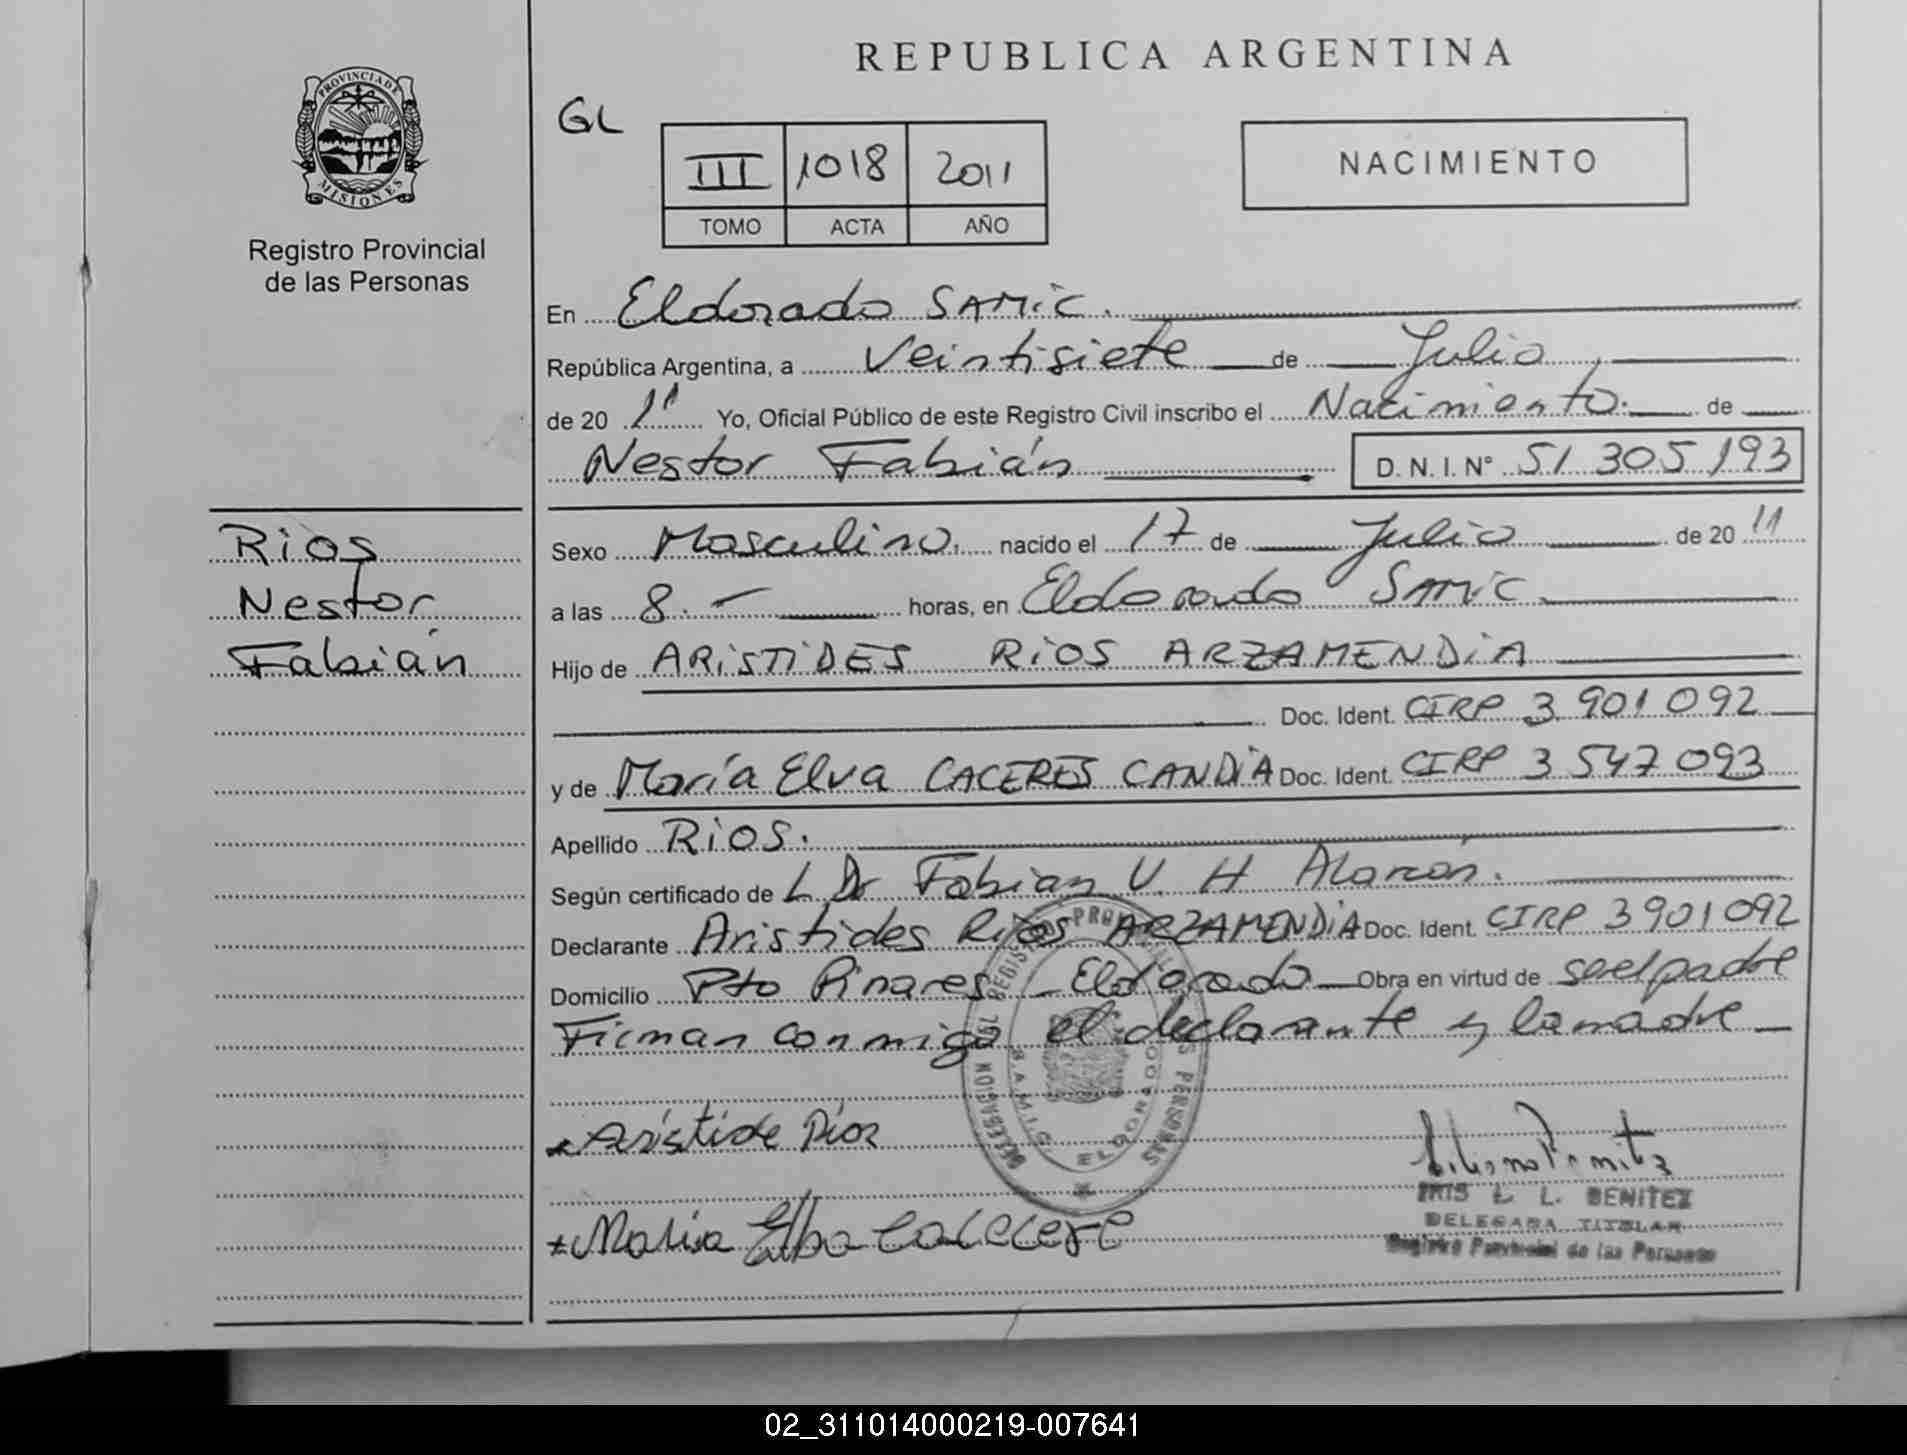 REPUBLICA ARGENTINA
PROVINCIA DE
MISIONES
Registro Provincial
de las Personas
GL
III 1018 2011
TOMO ACTA AÑO
NACIMIENTO
En Eldorado SAMiC.
República Argentina, a Veintisiete de Julio
de 20 11 Yo, Oficial Público de este Registro Civil inscribo el Nacimiento. de
Nestor Fabián D. N. I. N° 51 305 193
Rios
Nestor
Fabián
Sexo Masculino. nacido el 17 de Julio de 20 11
a las 8. - horas, en Eldorado SAMiC
Hijo de ARiSTiDES RiOS ARZAMENDiA
Doc. Ident. CIRP 3 901 092
y de María Elva CACERES CANDiA Doc. Ident. CIRP 3 547 093
Apellido RiOS.
Según certificado de L Dr Fabian V. H Alarcón.
Declarante Aristides Rios ARZAMENDiA Doc. Ident. CIRP 3901 092
Domicilio Pto Pinares - Eldorado Obra en virtud de ser el padre
Firman conmigo el declarante y la madre
DELEGACION DEL REGISTRO PROVINCIAL DE LAS PERSONAS
S.A.M.I.C. ELDORADO
Arístide Ríos
Maria Elba
L. L. BENITEZ
DELEGADA TITULAR
Registro Provincial de las Personas
02_311014000219-007641